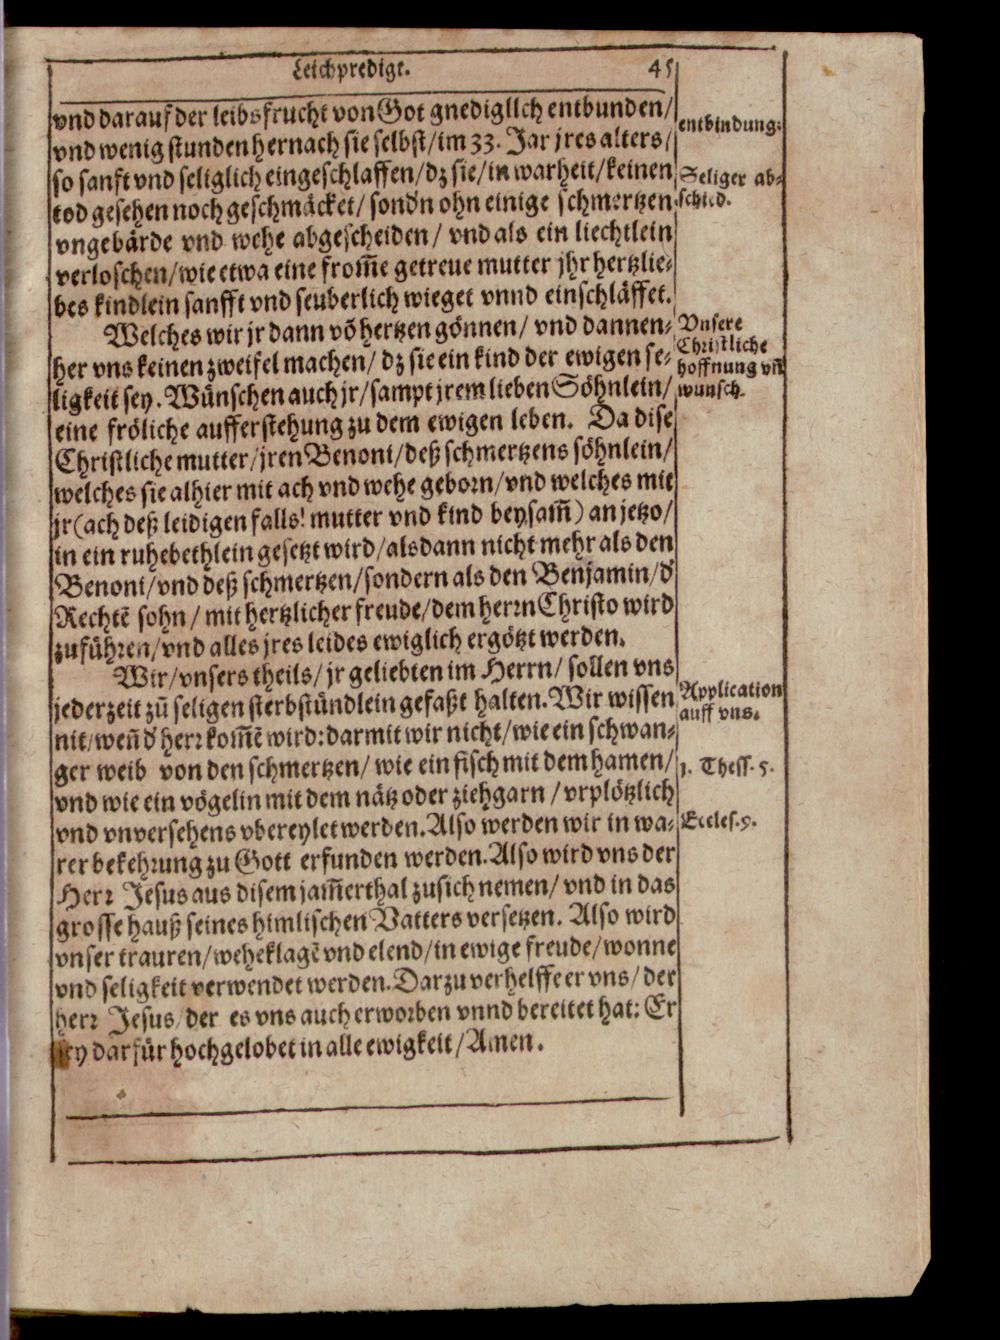 Leichpredigt. 45
vnd darauf der leibsfrucht von Got gnediglich entbunden/
entbindung.
vnd wenig stunden hernach sie selbst/im 33. Jar jres alters/
so sanft vnd seliglich eingeschlaffen/dz sie/in warheit/keinen
Seliger ab-
tod gesehen noch geschmäcket/ sondn ohn einige schmertzen
schied.
vngebärde vnd wehe abgescheiden/ vnd als ein liechtlein
verloschen/wie etwa eine from̃e getreue mutter jhr hertzlie-
bes kindlein sanfft vnd seuberlich wieget vnnd einschläffet.
Welches wir jr dann võ hertzen gönnen/ vnd dannen-
Vnsere
Christliche
her vns keinen zweifel machen/ dz sie ein kind der ewigen se-
hoffnung vñ
ligkeit sey. Wünschen auch jr/sampt jrem lieben Söhnlein/
wunsch.
eine fröliche aufferstehung zu dem ewigen leben. Da dise
Christliche mutter/jren Benoni/deß schmertzens söhnlein/
welches sie alhier mit ach vnd wehe geborn/vnd welches mit
jr(ach deß leidigen falls! mutter vnd kind beysam̃) an jetzo/
in ein ruhebethlein gesetzt wird/alsdann nicht mehr als den
Benoni/vnd deß schmertzen/sondern als den Benjamin/d̕
Rechtẽ sohn/ mit hertzlicher freude/dem herrn Christo wird
zuführen/vnd alles jres leides ewiglich ergötzt werden.
Wir/vnsers theils/jr geliebten im Herrn/ sollen vns
jederzeit zũ seligen sterbstündlein gefaßt halten. Wir wissen
Application
auff vns.
nit/weñ d̕ herr kom̃ẽ wird: darmit wir nicht/wie ein schwan-
ger weib von den schmertzen/ wie ein fisch mit dem hamen/
1. Thess. 5.
vnd wie ein vögelin mit dem nätz oder ziehgarn/vrplötzlich
vnd vnversehens vbereylet werden. Also werden wir in wa-
Eccles.9.
rer bekehrung zu Gott erfunden werden. Also wird vns der
Herr Jesus aus disem jam̃erthal zusich nemen/ vnd in das
grosse hauß seines himlischen Vatters versetzen. Also wird
vnser trauren/weheklagẽ vnd elend/in ewige freude/wonne
vnd seligkeit verwendet werden. Darzu verhelffe er vns/ der
herr Jesus/der es vns auch erworben vnnd bereitet hat: Er
sey darfür hochgelobet in alle ewigkeit/Amen.